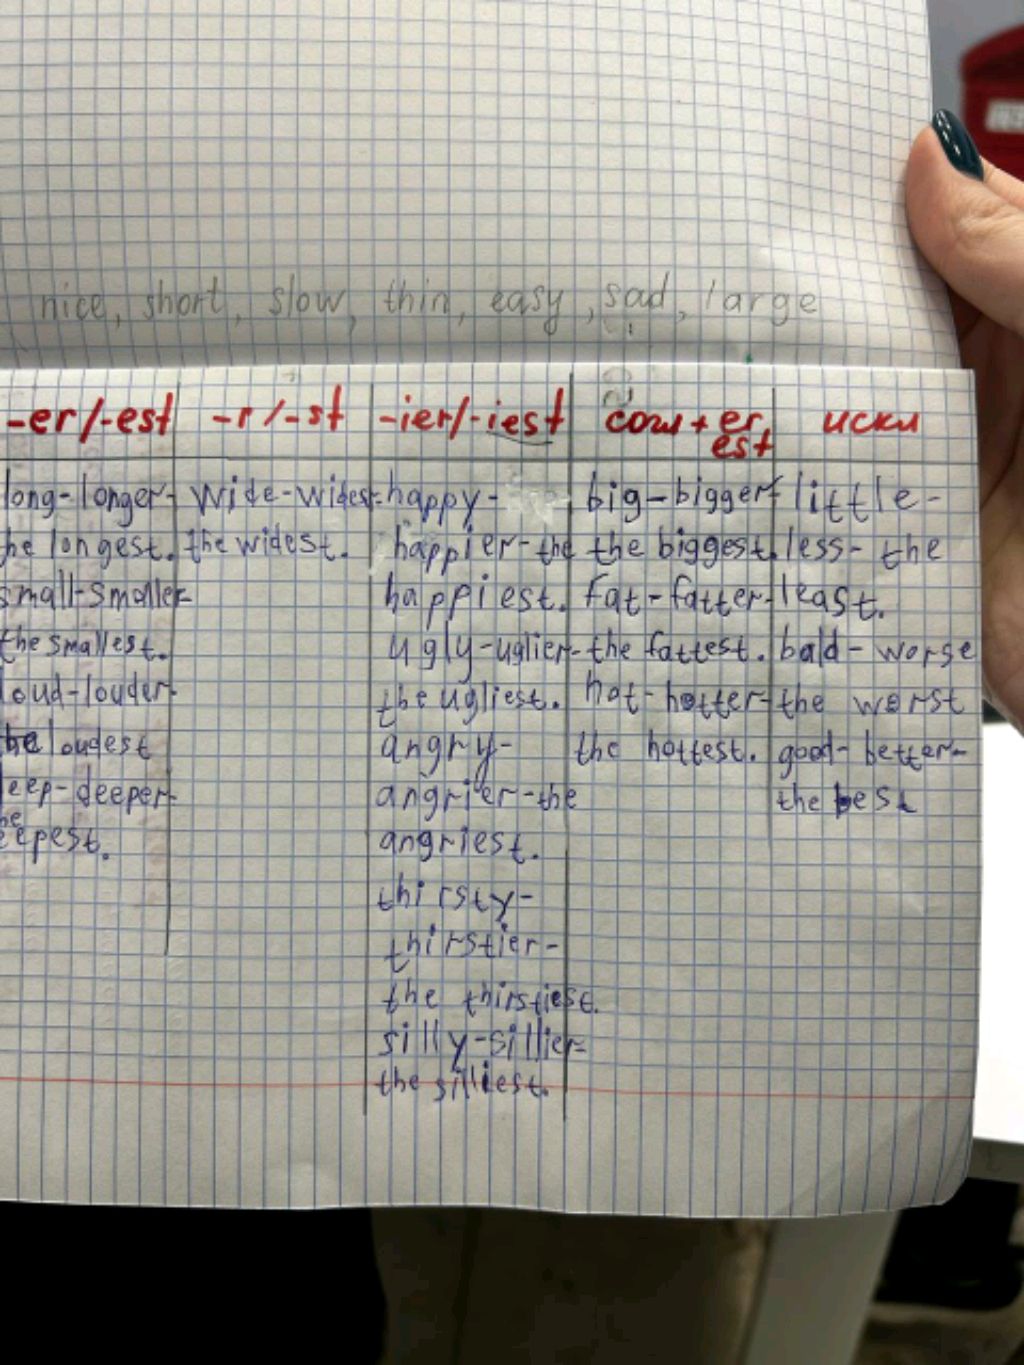 nice, short, slow, thin, easy, sad, large
-er/-est -r/-st -ier/-iest согл + er est искл
long-longer- wide-widest- happy- big-bigger- little-
he longest. the widest. happier-the the biggest. less- the
small-smaller- happiest. fat-fatter- least.
the smallest. ugly-uglier- the fattest. bald- worse
loud-louder- the ugliest. hot-hotter- the worst
the loudest angry- the hottest. good- better-
eep-deeper- angrier-the the best
he
eepest. angriest.
thirsty-
thirstier-
the thirstiest.
silly-sillier-
the silliest.